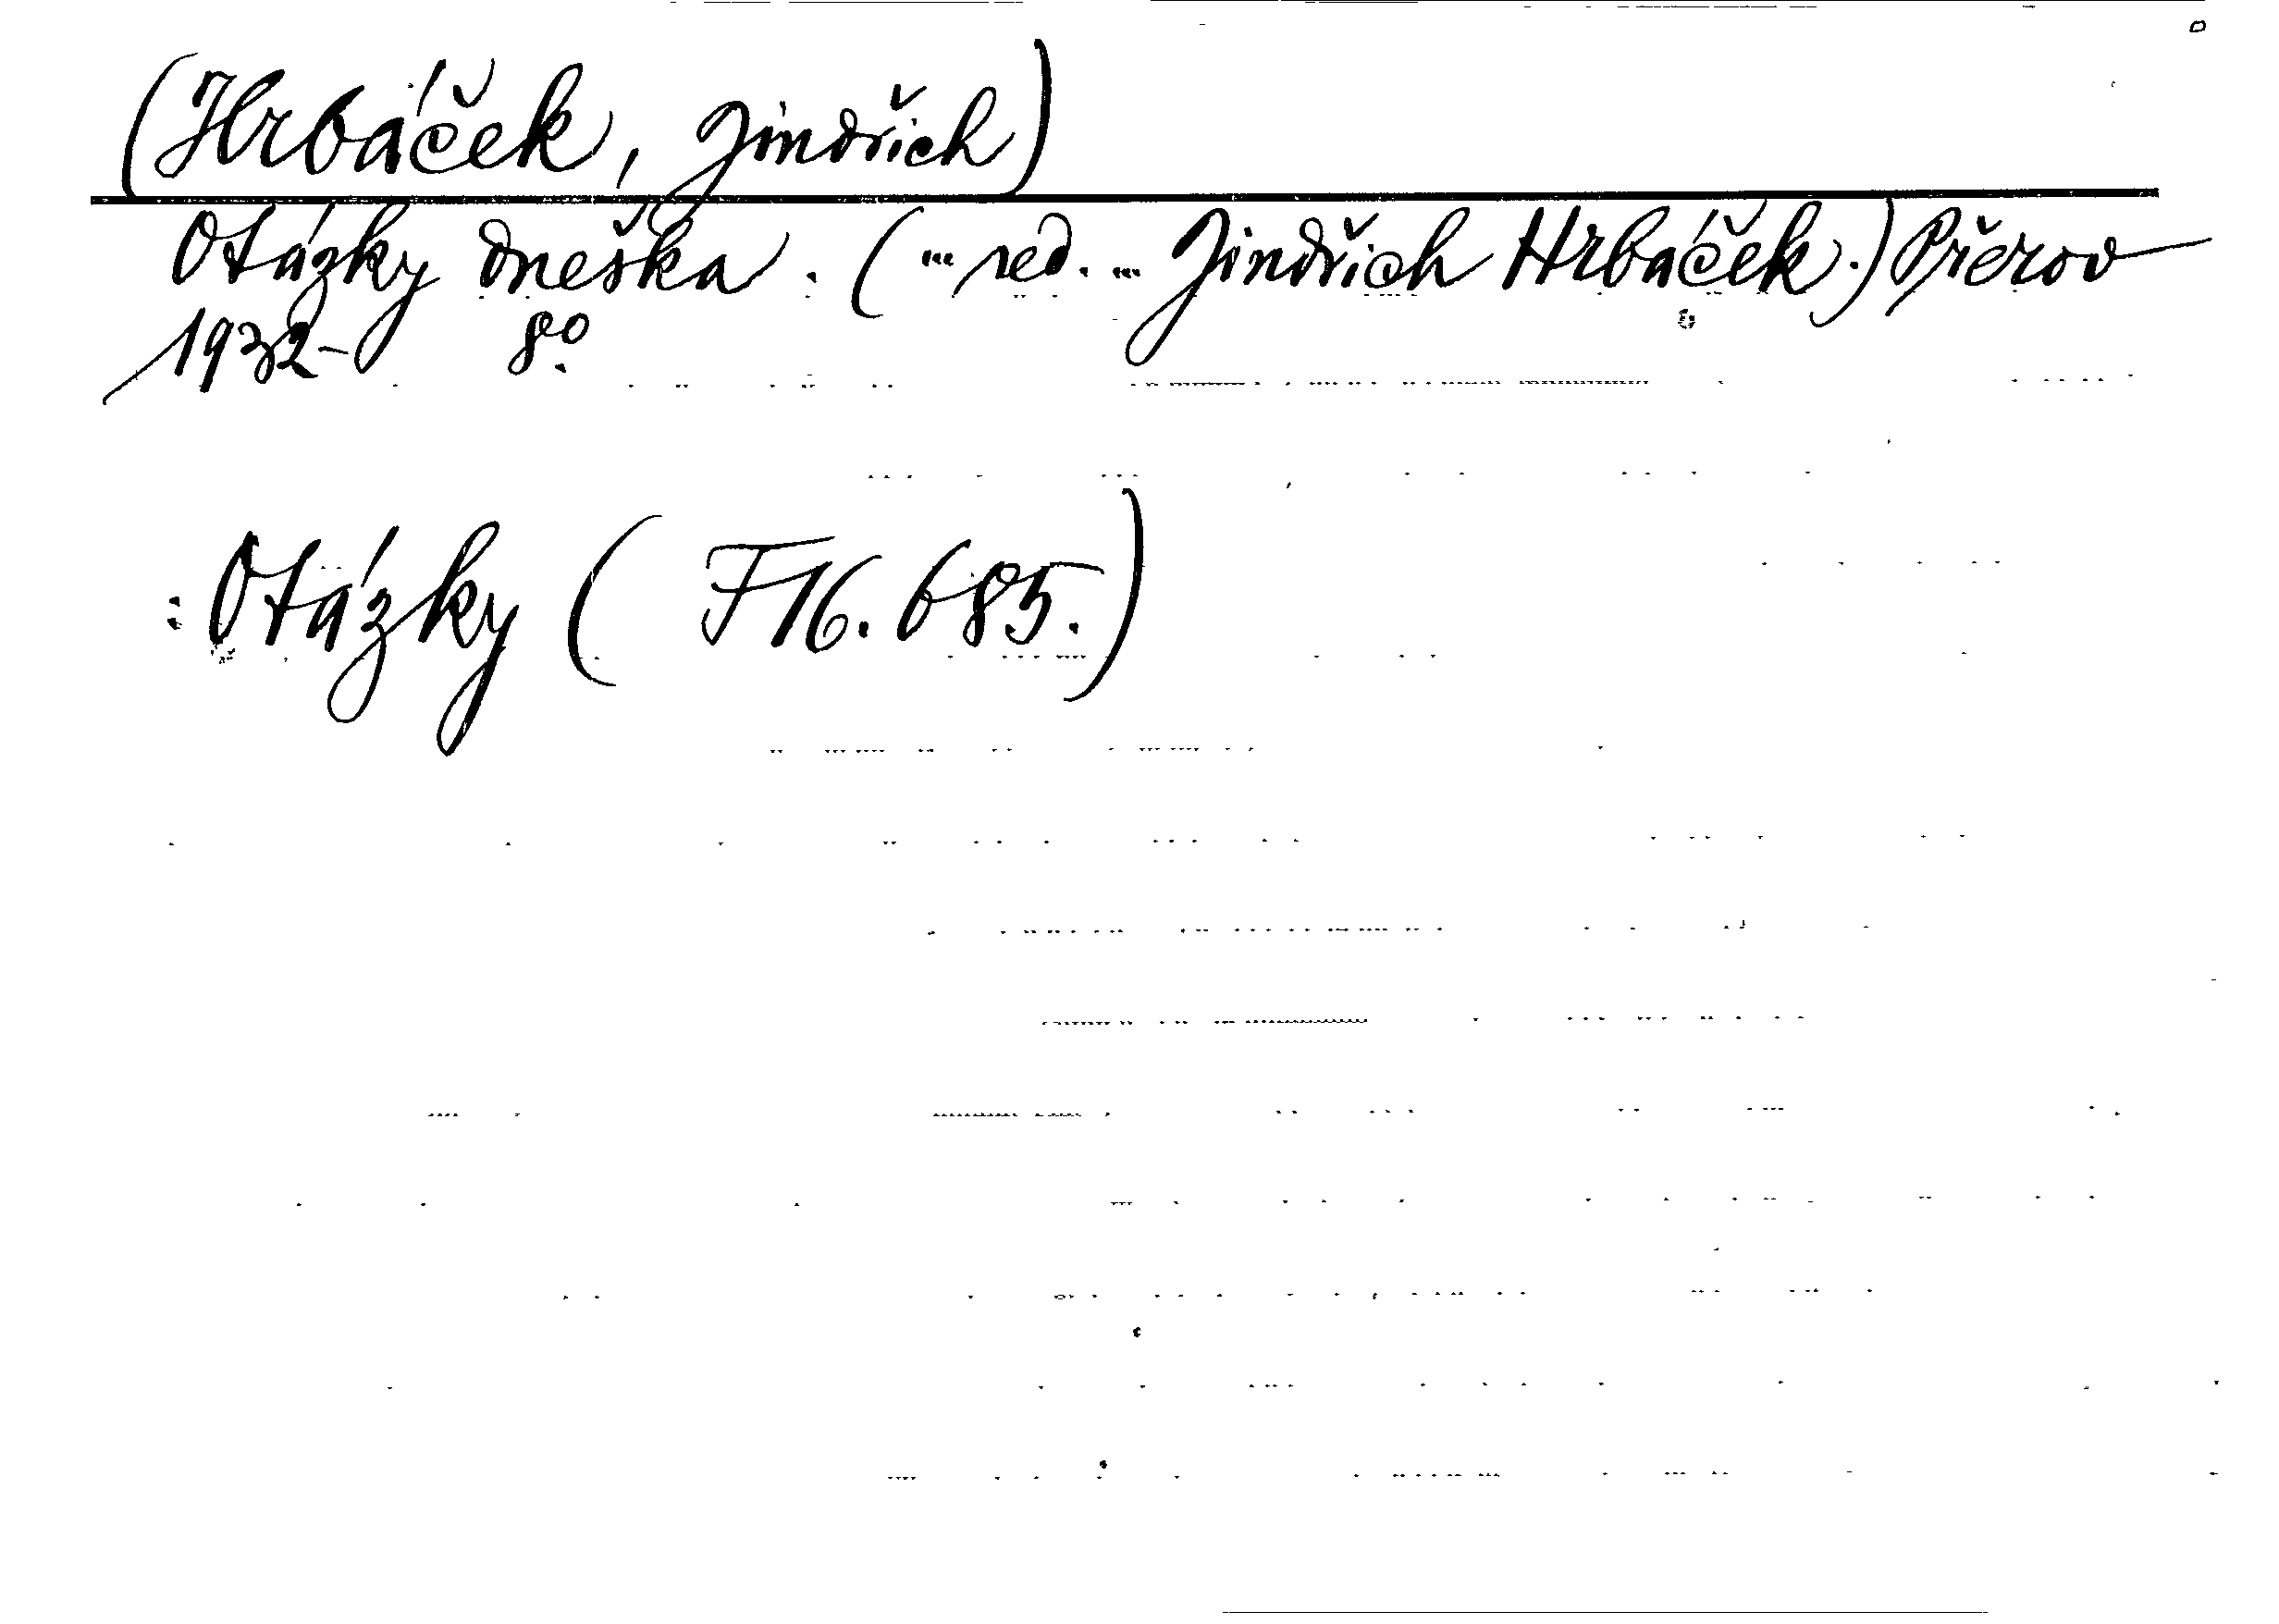 (Hrbáček, Jindřich)
Otázky dneška. (... red. ... Jindřich Hrbáček.) Přerov
1932- 8º.
: Otázky ( F 16.685.)